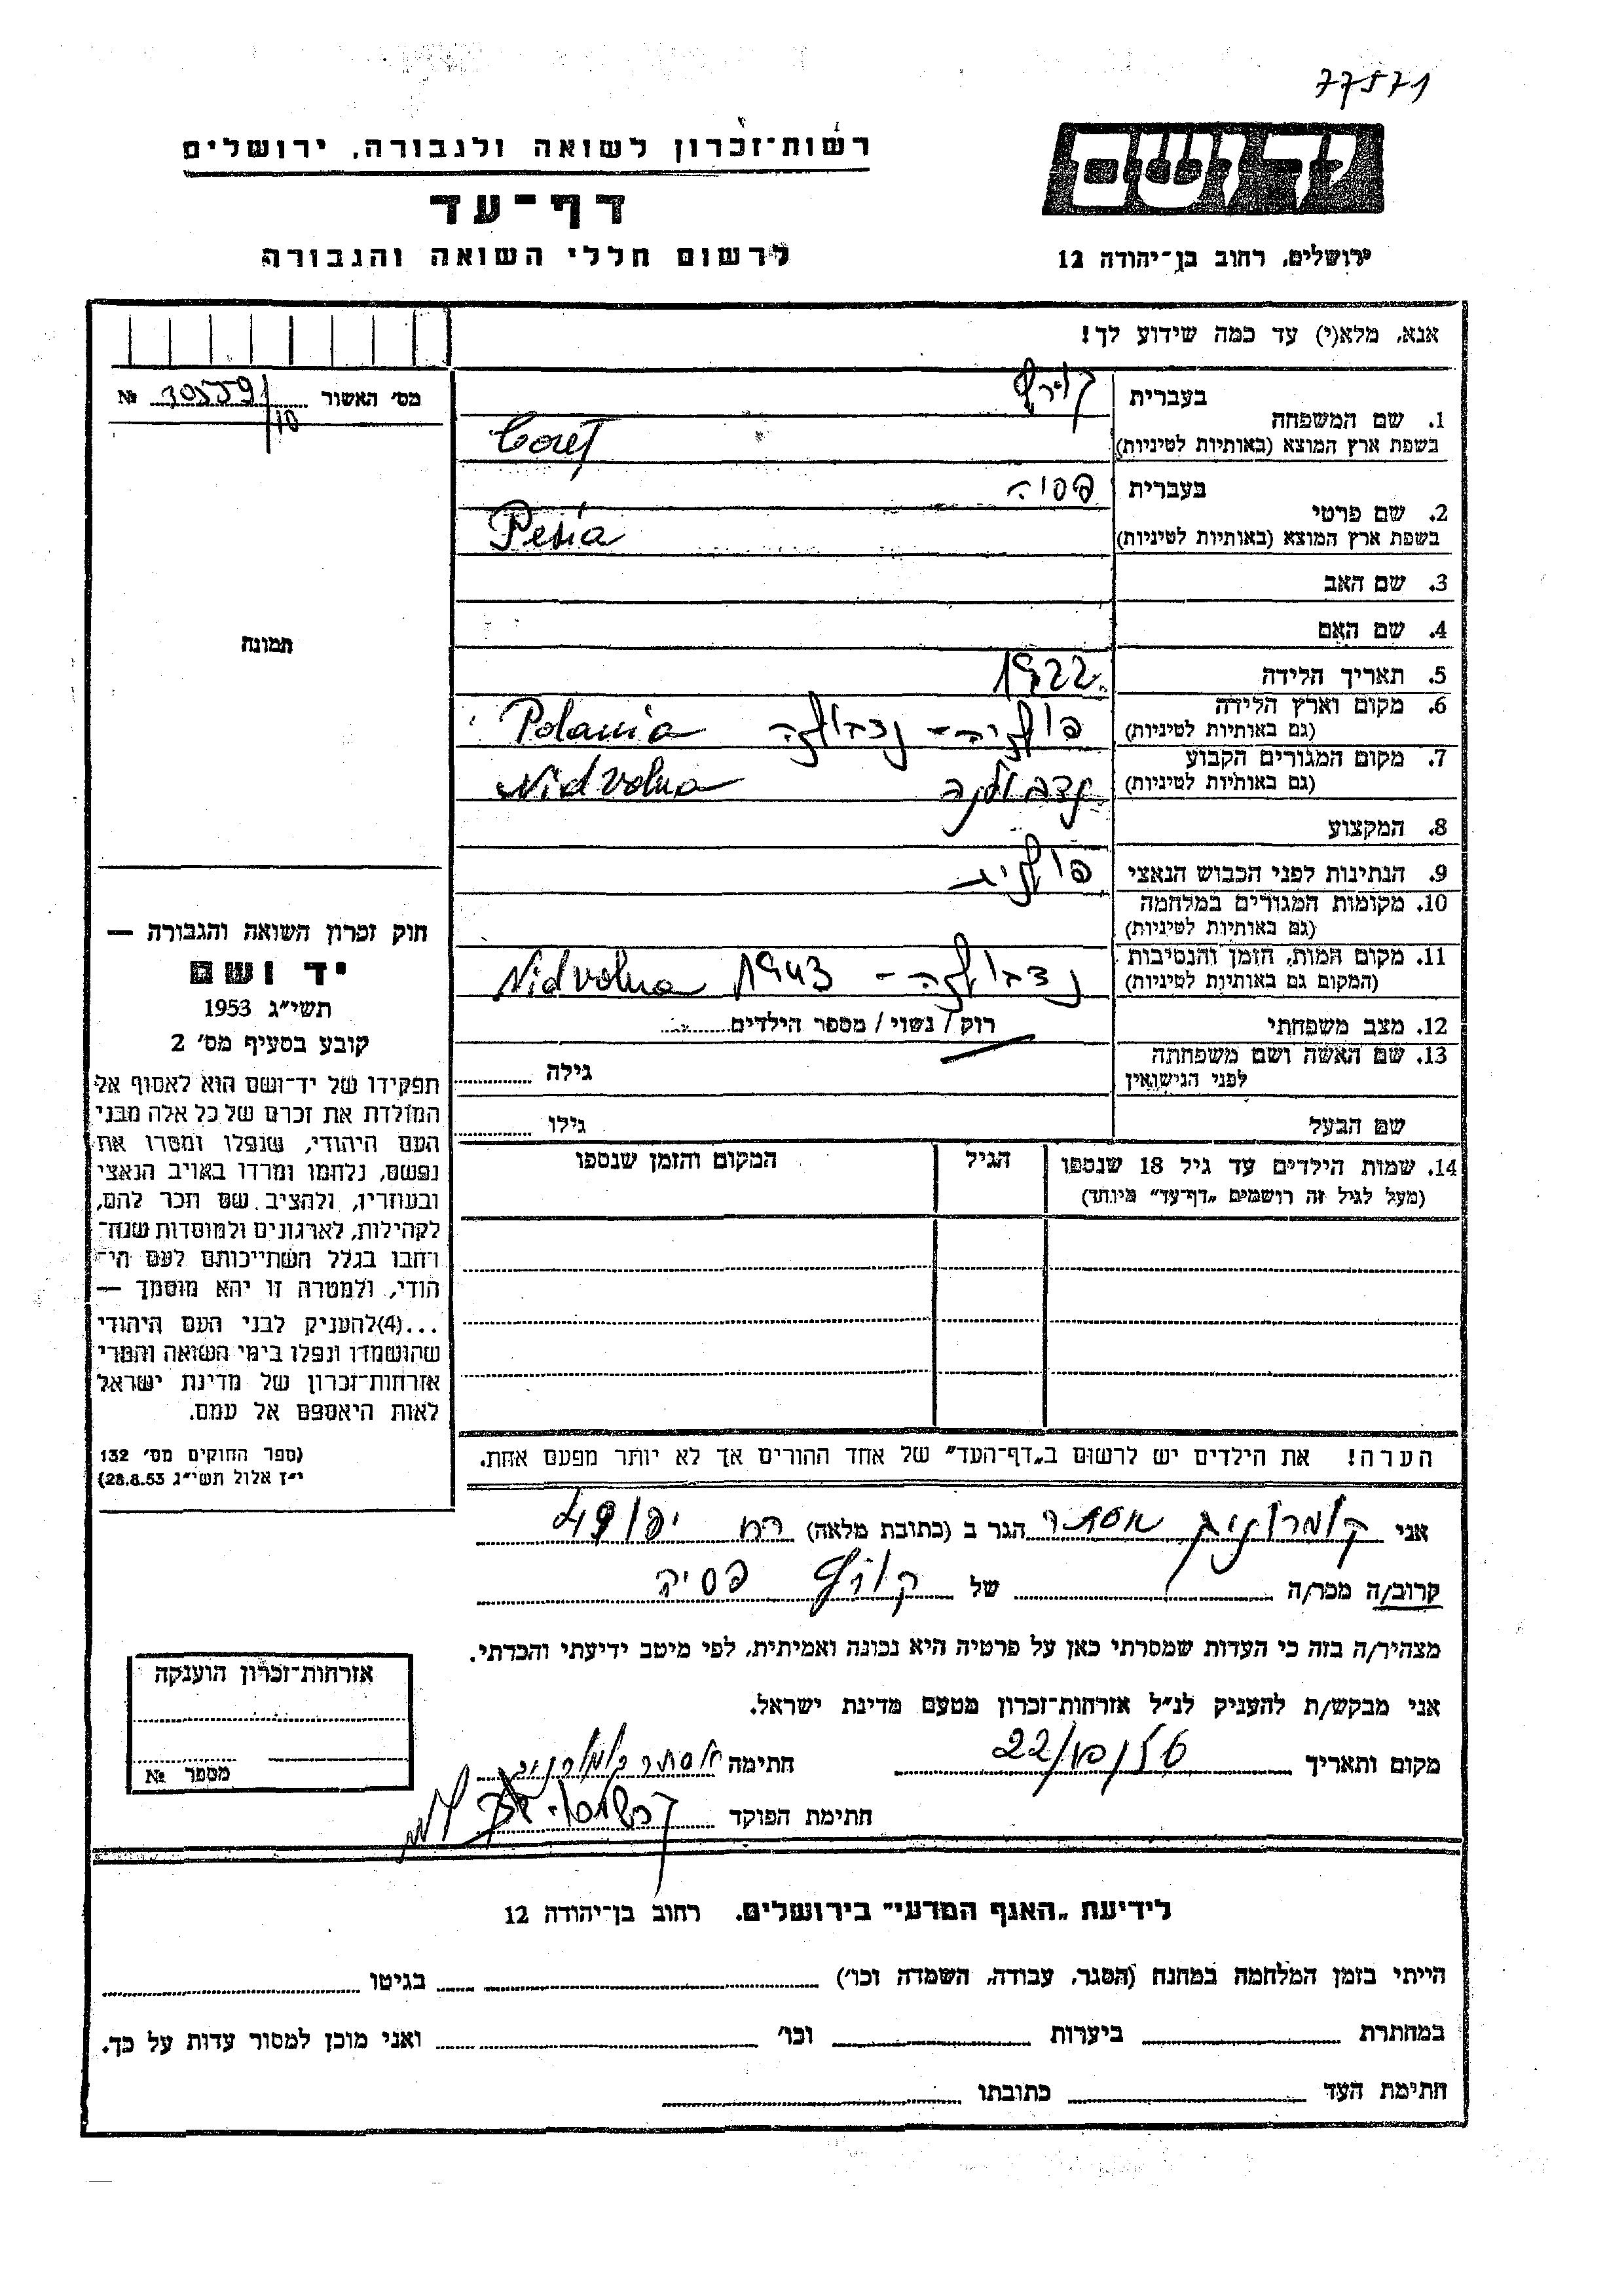 77571
יד ושם
ירושלים, רחוב בן־יהודה 12
רשות־זכרון לשואה ולגבורה, ירושלים
דף־עד
לרשום חללי השואה והגבורה
אנא, מלא(י) עד כמה שידוע לך!
מס' האשור 305591/10 №
תמונה
1. שם המשפחה
בעברית
בשפת ארץ המוצא (באותיות לטיניות)
2. שם פרטי
בעברית פסיה
בשפת ארץ המוצא (באותיות לטיניות) Pesia
3. שם האב
4. שם האם
5. תאריך הלידה 1922
6. מקום וארץ הלידה
(גם באותיות לטיניות) פולניה - נדבולנה Polania
7. מקום המגורים הקבוע
(גם באותיות לטיניות) נדבולנה Nidvolna
8. המקצוע
9. הנתינות לפני הכבוש הנאצי פולנית
10. מקומות המגורים במלחמה
(גם באותיות לטיניות)
11. מקום המות, הזמן והנסיבות
(המקום גם באותיות לטיניות) נדבולנה - 1943 Nidvolna
12. מצב משפחתי רוק / נשוי / מספר הילדים
13. שם האשה ושם משפחתה
לפני הנישואין גילה
שם הבעל גילו
14. שמות הילדים עד גיל 18 שנספו
(מעל לגיל זה רושמים „דף־עד" מיוחד)
הגיל
המקום והזמן שנספו
הערה! את הילדים יש לרשום ב„דף־העד" של אחד ההורים אך לא יותר מפעם אחת.
חוק זכרון השואה והגבורה —
יד ושם
תשי"ג 1953
קובע בסעיף מס' 2
תפקידו של יד־ושם הוא לאסוף אל
המולדת את זכרם של כל אלה מבני
העם היהודי, שנפלו ומסרו את
נפשם, נלחמו ומרדו באויב הנאצי
ובעוזריו, ולהציב שם וזכר להם,
לקהילות, לארגונים ולמוסדות שנח־
רחבו בגלל השתייכותם לעם הי־
הודי, ולמטרה זו יהא מוסמך —
...(4)להעניק לבני העם היהודי
שהושמדו ונפלו בימי השואה והמרי
אזרחות־זכרון של מדינת ישראל
לאות היאספם אל עמם.
(ספר החוקים מס' 132
י"ז אלול תשי"ג 28.8.53)
אני אסתר הגר ב (כתובת מלאה) 49
קרוב/ה מכר/ה של פסיה
מצהיר/ה בזה כי העדות שמסרתי כאן על פרטיה היא נכונה ואמיתית, לפי מיטב ידיעתי והכרתי.
אני מבקש/ת להעניק לנ"ל אזרחות־זכרון מטעם מדינת ישראל.
מקום ותאריך חתימה אסתר
חתימת הפוקד
אזרחות־זכרון הוענקה
מספר №
לידיעת „האגף המדעי" בירושלים, רחוב בן־יהודה 12
הייתי בזמן המלחמה במחנה (הסגר, עבודה, השמדה וכו') בגיטו
במחתרת ביערות וכו' ואני מוכן למסור עדות על כך.
חתימת העד כתובתו